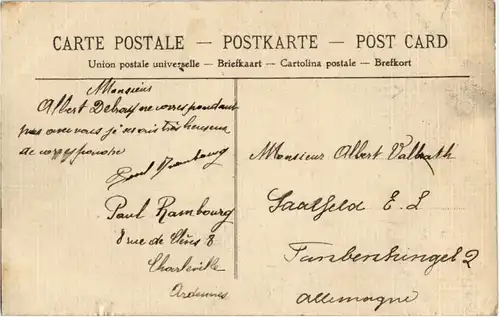 CARTE POSTALE — POSTKARTE — POST CARD
Union postale universelle — Briefkaart — Cartolina postale — Brefkort
Monsieur
Albert Delroy ne correspondant
pas avec vous je serais très heureux
de correspondre
Paul Rambourg
Paul Rambourg
8 rue de 8
Charleville
Ardennes
Monsieur Albert Vallrath
Saalfeld E. L
2
Allemagne